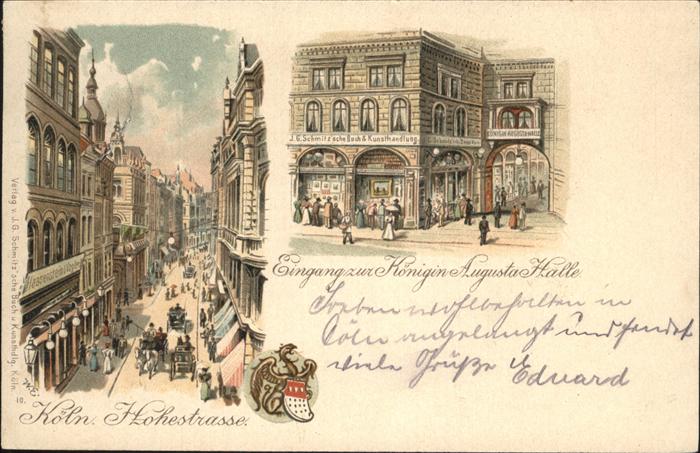 J.G.Schmitz'sche Buch & Kunsthandlung
KÖNIGIN AUGUSTA HALLE
Verlag v. J. G. Schmitz'sche Buch u Kunsthdlg. Köln.
10.
Köln. Hohestrasse.
Eingang zur Königin Augusta Halle
Soeben wohlbehalten in
Cöln angelangt und sendet
viele Grüße Eduard